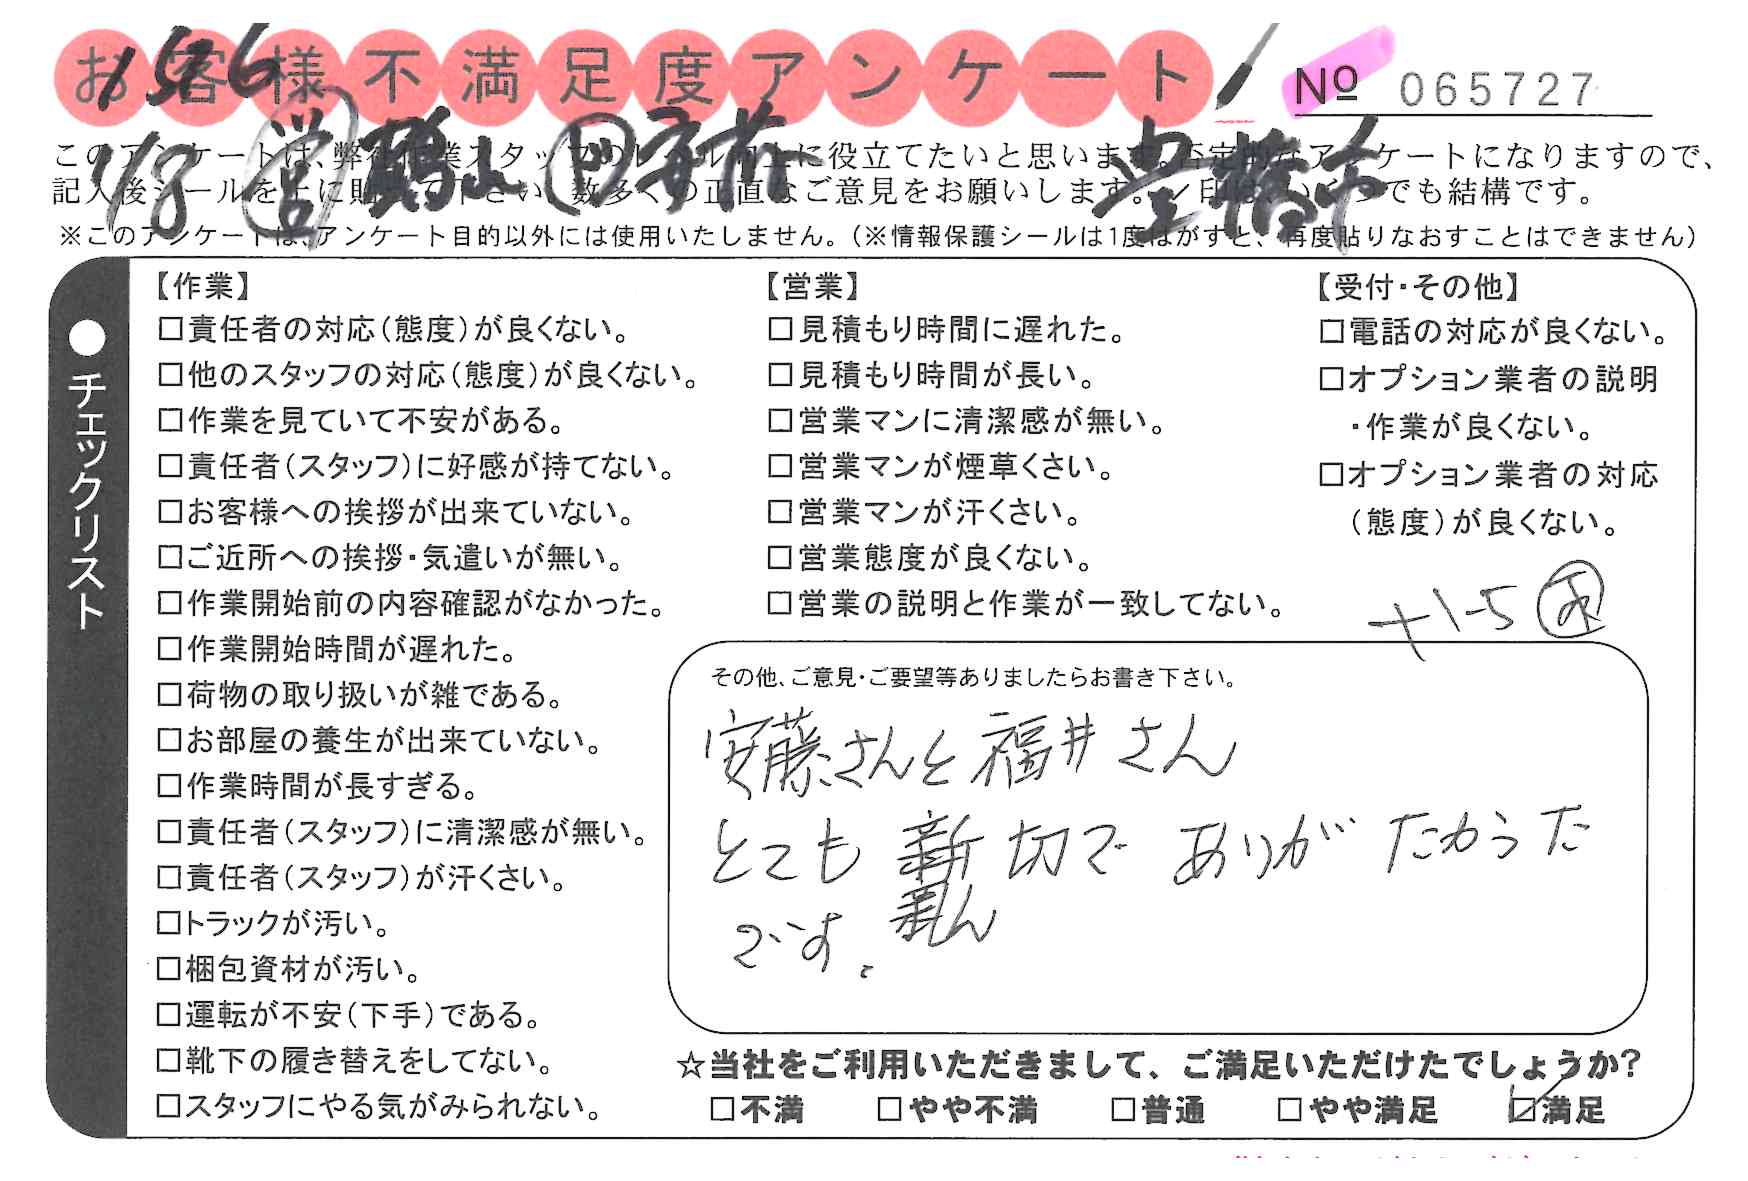 お客様不満足度アンケート
No 065727
1506
1/8 営 鶴山 ド 守前 豊橋市
このアンケートは、弊社作業スタッフのレベル向上に役立てたいと思います。否定的なアンケートになりますので、
記入後シールを上に貼って下さい。数多くの正直なご意見をお願いします。✓印は、いくつでも結構です。
※このアンケートは、アンケート目的以外には使用いたしません。(※情報保護シールは1度はがすと、再度貼りなおすことはできません)
●チェックリスト
【作業】
□責任者の対応(態度)が良くない。
□他のスタッフの対応(態度)が良くない。
□作業を見ていて不安がある。
□責任者(スタッフ)に好感が持てない。
□お客様への挨拶が出来ていない。
□ご近所への挨拶・気遣いが無い。
□作業開始前の内容確認がなかった。
□作業開始時間が遅れた。
□荷物の取り扱いが雑である。
□お部屋の養生が出来ていない。
□作業時間が長すぎる。
□責任者(スタッフ)に清潔感が無い。
□責任者(スタッフ)が汗くさい。
□トラックが汚い。
□梱包資材が汚い。
□運転が不安(下手)である。
□靴下の履き替えをしてない。
□スタッフにやる気がみられない。
【営業】
□見積もり時間に遅れた。
□見積もり時間が長い。
□営業マンに清潔感が無い。
□営業マンが煙草くさい。
□営業マンが汗くさい。
□営業態度が良くない。
□営業の説明と作業が一致してない。
【受付・その他】
□電話の対応が良くない。
□オプション業者の説明
・作業が良くない。
□オプション業者の対応
(態度)が良くない。
その他、ご意見・ご要望等ありましたらお書き下さい。
安藤さんと福井さん
とても 切で ありがたかった
です。
☆当社をご利用いただきまして、ご満足いただけたでしょうか?
□不満 □やや不満 □普通 □やや満足 ☑満足